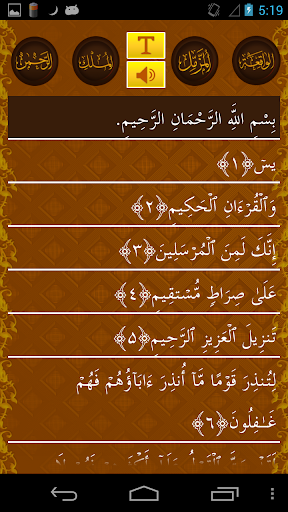 5:19
الواقعة المزمل T الملك الرحمن
بِسْمِ اللَّهِ الرَّحْمَانِ الرَّحِيمِ.
يسٓ ﴿١﴾
وَٱلْقُرْءَانِ ٱلْحَكِيمِ ﴿٢﴾
إِنَّكَ لَمِنَ ٱلْمُرْسَلِينَ ﴿٣﴾
عَلَىٰ صِرَاطٍ مُّسْتَقِيمٍ ﴿٤﴾
تَنزِيلَ ٱلْعَزِيزِ ٱلرَّحِيمِ ﴿٥﴾
لِتُنذِرَ قَوْمًا مَّآ أُنذِرَ ءَابَآؤُهُمْ فَهُمْ
غَـٰفِلُونَ ﴿٦﴾